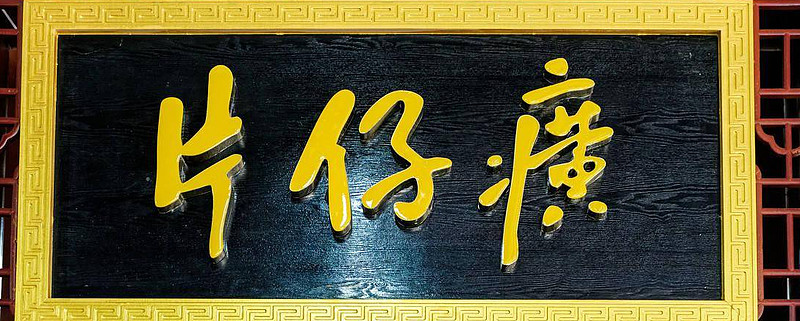 片仔癀